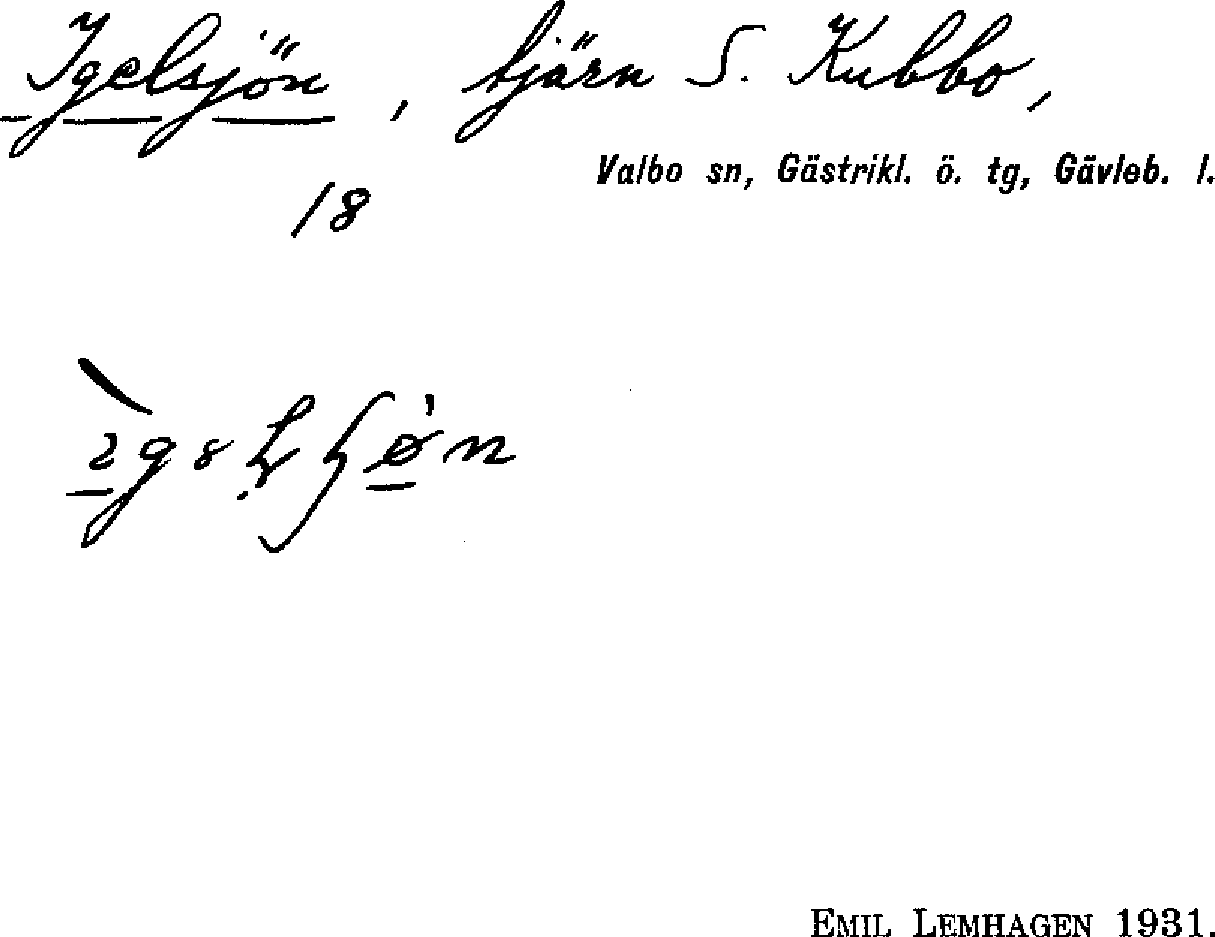 Igelsjön, tjärn S. Kubbo,
Valbo sn, Gästrikl. ö. tg, Gävleb. l.
18
EMIL LEMHAGEN 1931.